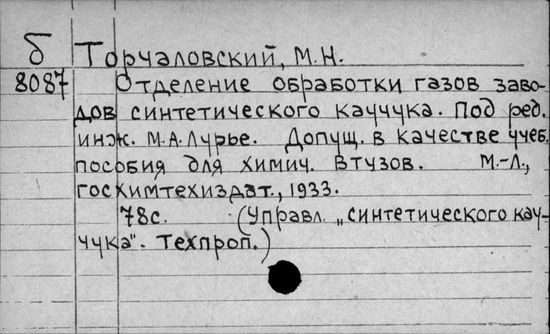 б Торчаловский, М.Н.
8087 Отделение обработки газов заво-
дов синтетического каучука. Под ред.
инж. М.А.Лурье. Допущ. в качестве учеб.
пособия для химич. втузов. М.-Л.,
госхимтехиздат., 1933.
78с. (Управл. „синтетического кау-
чука". Техпроп.)